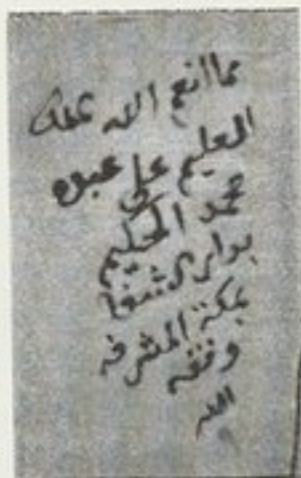 مما انعم الله عليه
العليم على عبده
محمد الحكيم
بدار الشفا
بمكة المشرفة
وفقه
الله